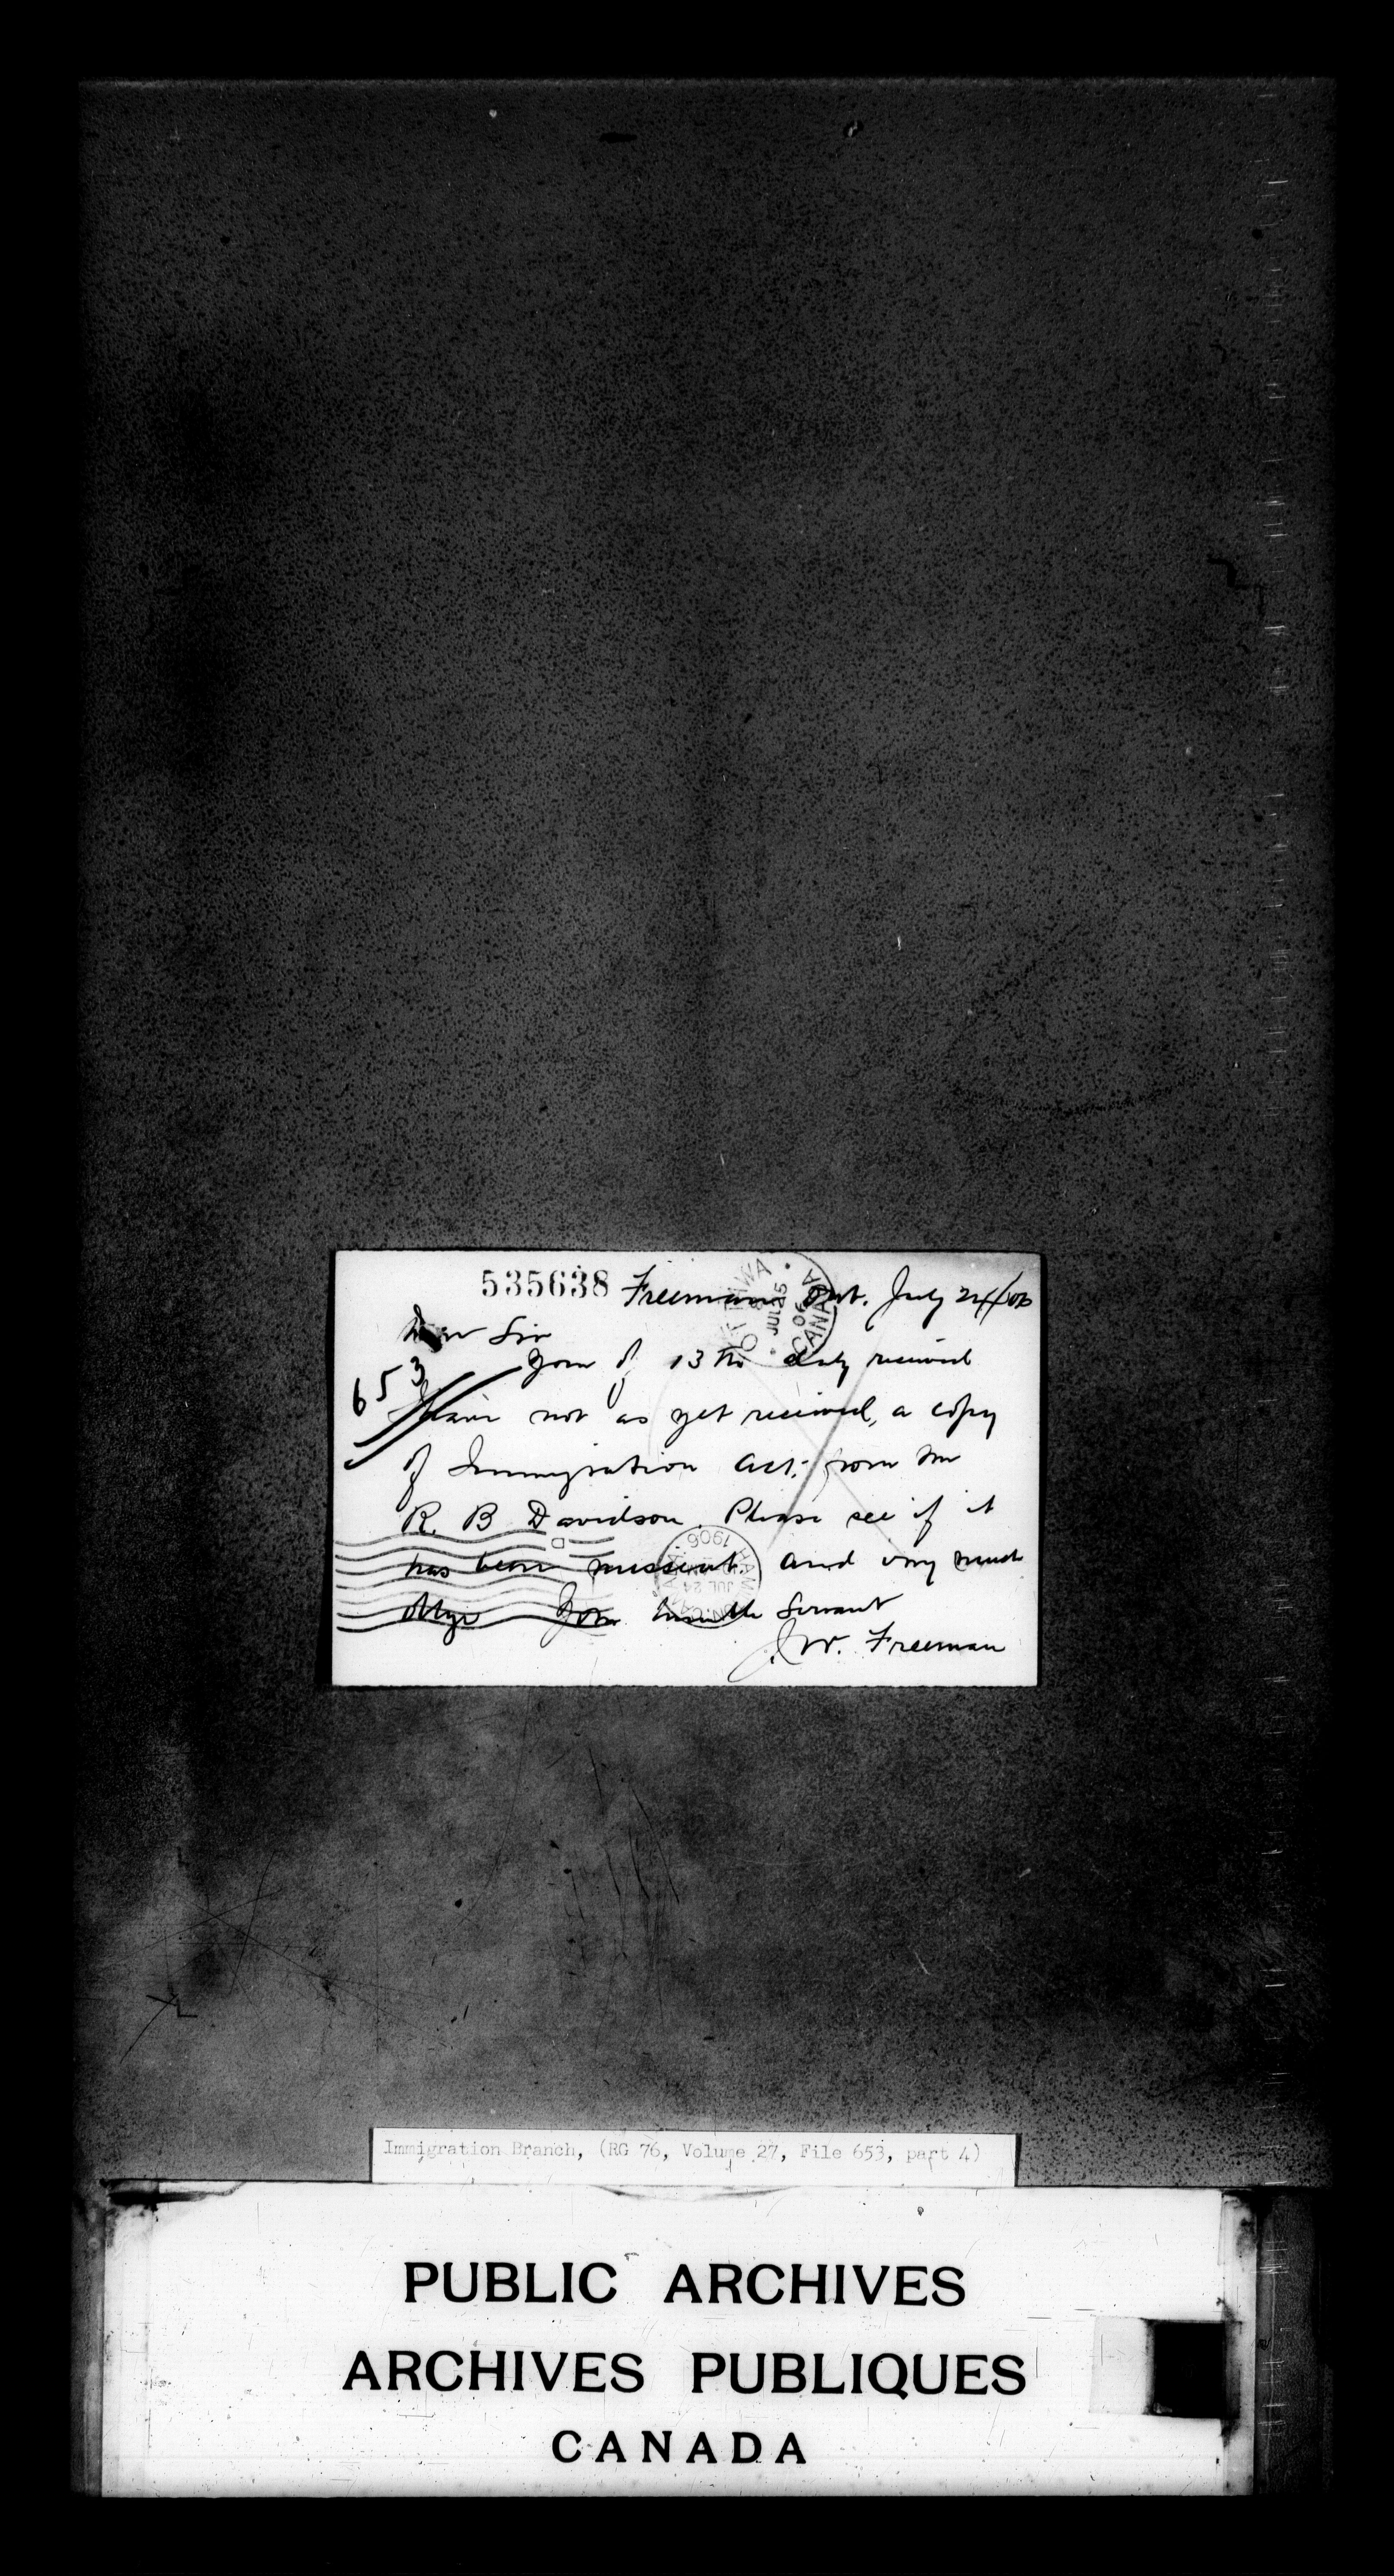 535638 Freeman Ont. July 24/06
Dear Sir
Your of 13th duly received
653
Have not as yet received, a copy
of Immigration Act, from Mr
R. B Davidson. Please see if it
has been missent. and very much
oblige Your humble Servant
J. W. Freeman
OTTAWA
JUL 25
06
CANADA
HAMILTON CANADA
JUL 24
1906
Immigration Branch, (RG 76, Volume 27, File 653, part 4)
PUBLIC ARCHIVES
ARCHIVES PUBLIQUES
CANADA